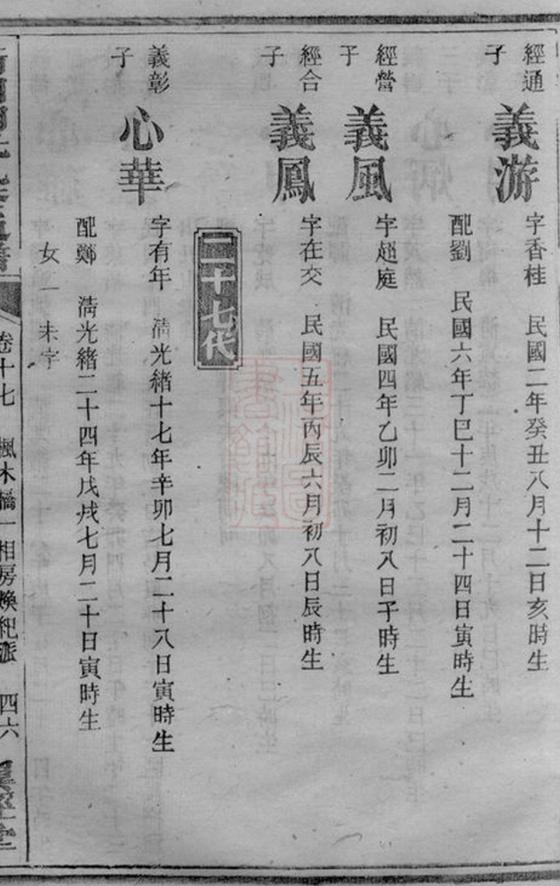 經通子
義游
字香桂 民國二年癸丑八月十二日亥時生
配劉 民國六年丁巳十二月二十四日寅時生
經營子
義風
字趙庭 民國四年乙卯二月初八日子時生
經合子
義鳳
字在交 民國五年丙辰六月初八日辰時生
二十七代
義彰子
心華
字有年 淸光緒十七年辛卯七月二十八日寅時生
配鄭 淸光緒二十四年戊戌七月二十日寅時生
女一未字
卷十七 楓木橋一相房煥紀派 四六